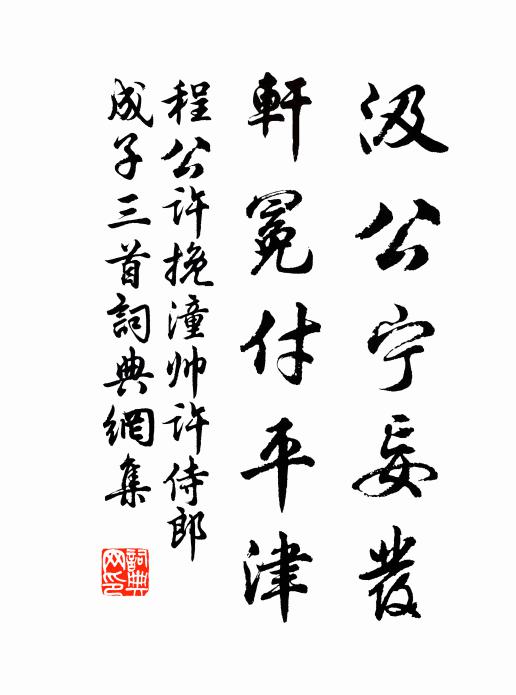 汲公宁妄發
軒冕付平津
程公许挽潼帅许侍郎
成子三首詞典網集
詞典
网印